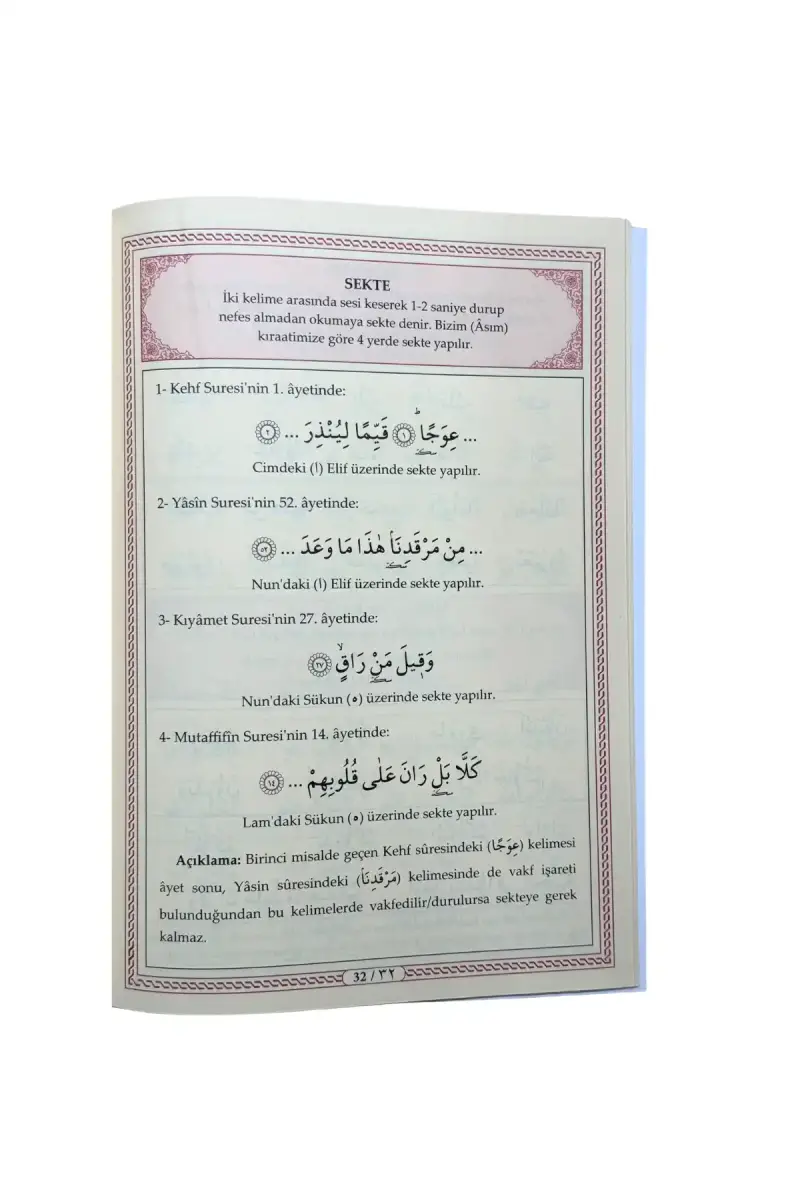 SEKTE
İki kelime arasında sesi keserek 1-2 saniye durup
nefes almadan okumaya sekte denir. Bizim (Âsım)
kıraatimize göre 4 yerde sekte yapılır.
1- Kehf Suresi'nin 1. âyetinde:
... عِوَجًا ﴿١﴾ قَيِّمًا لِيُنْذِرَ ... ﴿٢﴾
Cimdeki (ا) Elif üzerinde sekte yapılır.
2- Yâsîn Suresi'nin 52. âyetinde:
... مِنْ مَرْقَدِنَا هٰذَا مَا وَعَدَ ... ﴿٥٢﴾
Nun'daki (ا) Elif üzerinde sekte yapılır.
3- Kıyâmet Suresi'nin 27. âyetinde:
وَقٖيلَ مَنْ رَاقٍۙ ﴿٢٧﴾
Nun'daki Sükun (ه) üzerinde sekte yapılır.
4- Mutaffifîn Suresi'nin 14. âyetinde:
كَلَّا بَلْ رَانَ عَلٰى قُلُوبِهِمْ ... ﴿١٤﴾
Lam'daki Sükun (ه) üzerinde sekte yapılır.
Açıklama: Birinci misalde geçen Kehf sûresindeki (عِوَجًا) kelimesi
âyet sonu, Yâsin sûresindeki (مَرْقَدِنَا) kelimesinde de vakf işareti
bulunduğundan bu kelimelerde vakfedilir/durulursa sekteye gerek
kalmaz.
32 / ٣٢